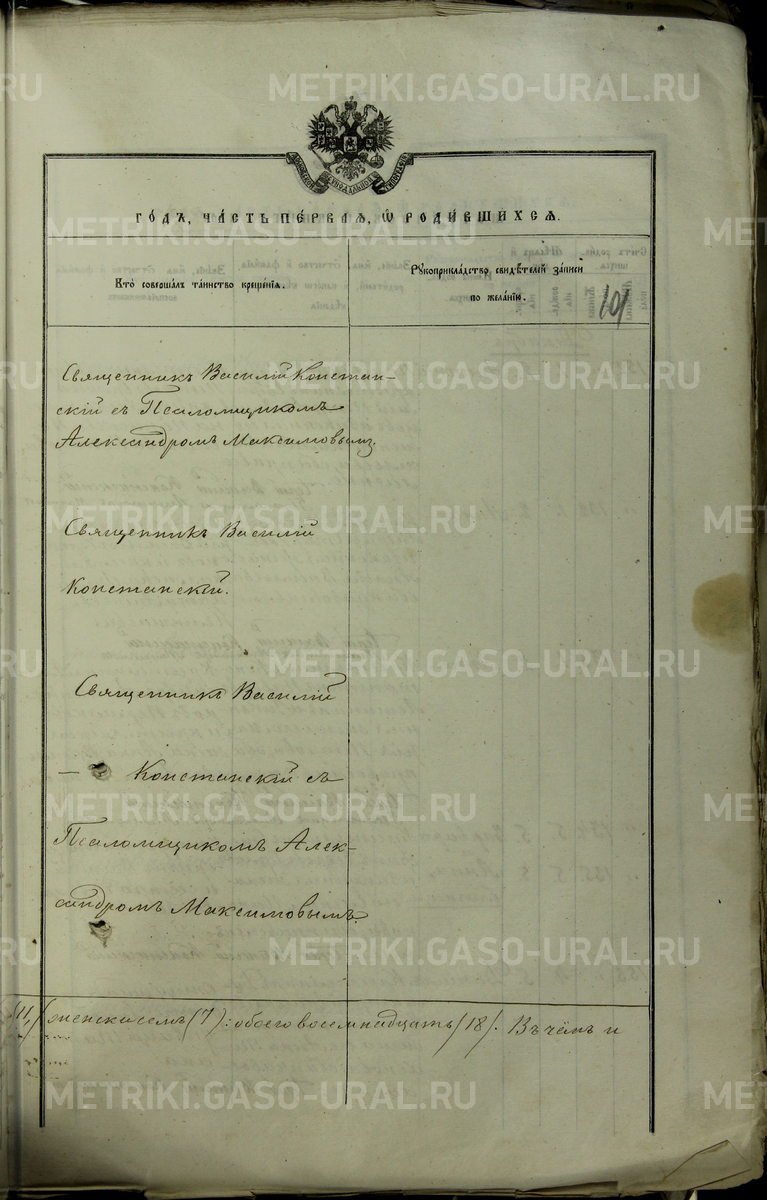 METRIKI.GASO-URAL.RU
СѶНОДАЛЬНОЙ
ГО́ДѢ, ЧА́СТЬ ПЕ́РВАЯ, Ѡ҆ РОДИ́ВШИХСЯ.
Кто̀ соверша́лъ та́инство креще́нїя.
Рꙋкоприкла́дство свидѣ́телей за́писи
по жела́нїю.
101
Священникъ Василій Констан-
скій съ Псаломщикомъ
Александромъ Максимовымъ.
Священникъ Василій
Констанскій.
Священникъ Василій
— Констанскій съ
Псаломщикомъ Алек-
сандромъ Максимовымъ.
(11,) женска семь (7): обоего восемнадцать (18). Въ чемъ и